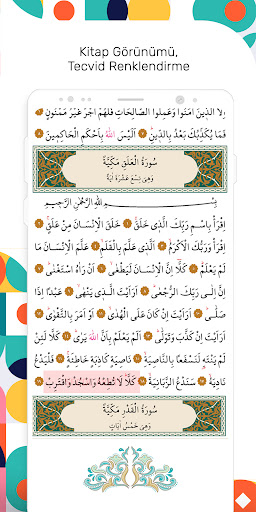 Kitap Görünümü,
Tecvid Renklendirme
اِلَّا الَّذٖينَ اٰمَنُوا وَعَمِلُوا الصَّالِحَاتِ فَلَهُمْ اَجْرٌ غَيْرُ مَمْنُونٍ
فَمَا يُكَذِّبُكَ بَعْدُ بِالدّٖينِ اَلَيْسَ اللّٰهُ بِاَحْكَمِ الْحَاكِمٖينَ
سُورَةُ الْعَلَقِ مَكِّيَّةٌ
وَهِيَ تِسْعَ عَشْرَةَ اٰيَةً
بِسْمِ اللّٰهِ الرَّحْمٰنِ الرَّحٖيمِ
اِقْرَأْ بِاسْمِ رَبِّكَ الَّذٖى خَلَقَ خَلَقَ الْاِنْسَانَ مِنْ عَلَقٍ
اِقْرَأْ وَرَبُّكَ الْاَكْرَمُ اَلَّذٖى عَلَّمَ بِالْقَلَمِ عَلَّمَ الْاِنْسَانَ مَا
لَمْ يَعْلَمْ كَلَّا اِنَّ الْاِنْسَانَ لَيَطْغٰى اَنْ رَاٰهُ اسْتَغْنٰى
اِنَّ اِلٰى رَبِّكَ الرُّجْعٰى اَرَاَيْتَ الَّذٖى يَنْهٰى عَبْدًا اِذَا
صَلّٰى اَرَاَيْتَ اِنْ كَانَ عَلَى الْهُدٰى اَوْ اَمَرَ بِالتَّقْوٰى
اَرَاَيْتَ اِنْ كَذَّبَ وَتَوَلّٰى اَلَمْ يَعْلَمْ بِاَنَّ اللّٰهَ يَرٰى كَلَّا لَئِنْ
لَمْ يَنْتَهِ لَنَسْفَعًا بِالنَّاصِيَةِ نَاصِيَةٍ كَاذِبَةٍ خَاطِئَةٍ فَلْيَدْعُ
نَادِيَهُ سَنَدْعُ الزَّبَانِيَةَ كَلَّا لَا تُطِعْهُ وَاسْجُدْ وَاقْتَرِبْ
سُورَةُ الْقَدْرِ مَكِّيَّةٌ
وَهِيَ خَمْسُ اٰيَاتٍ